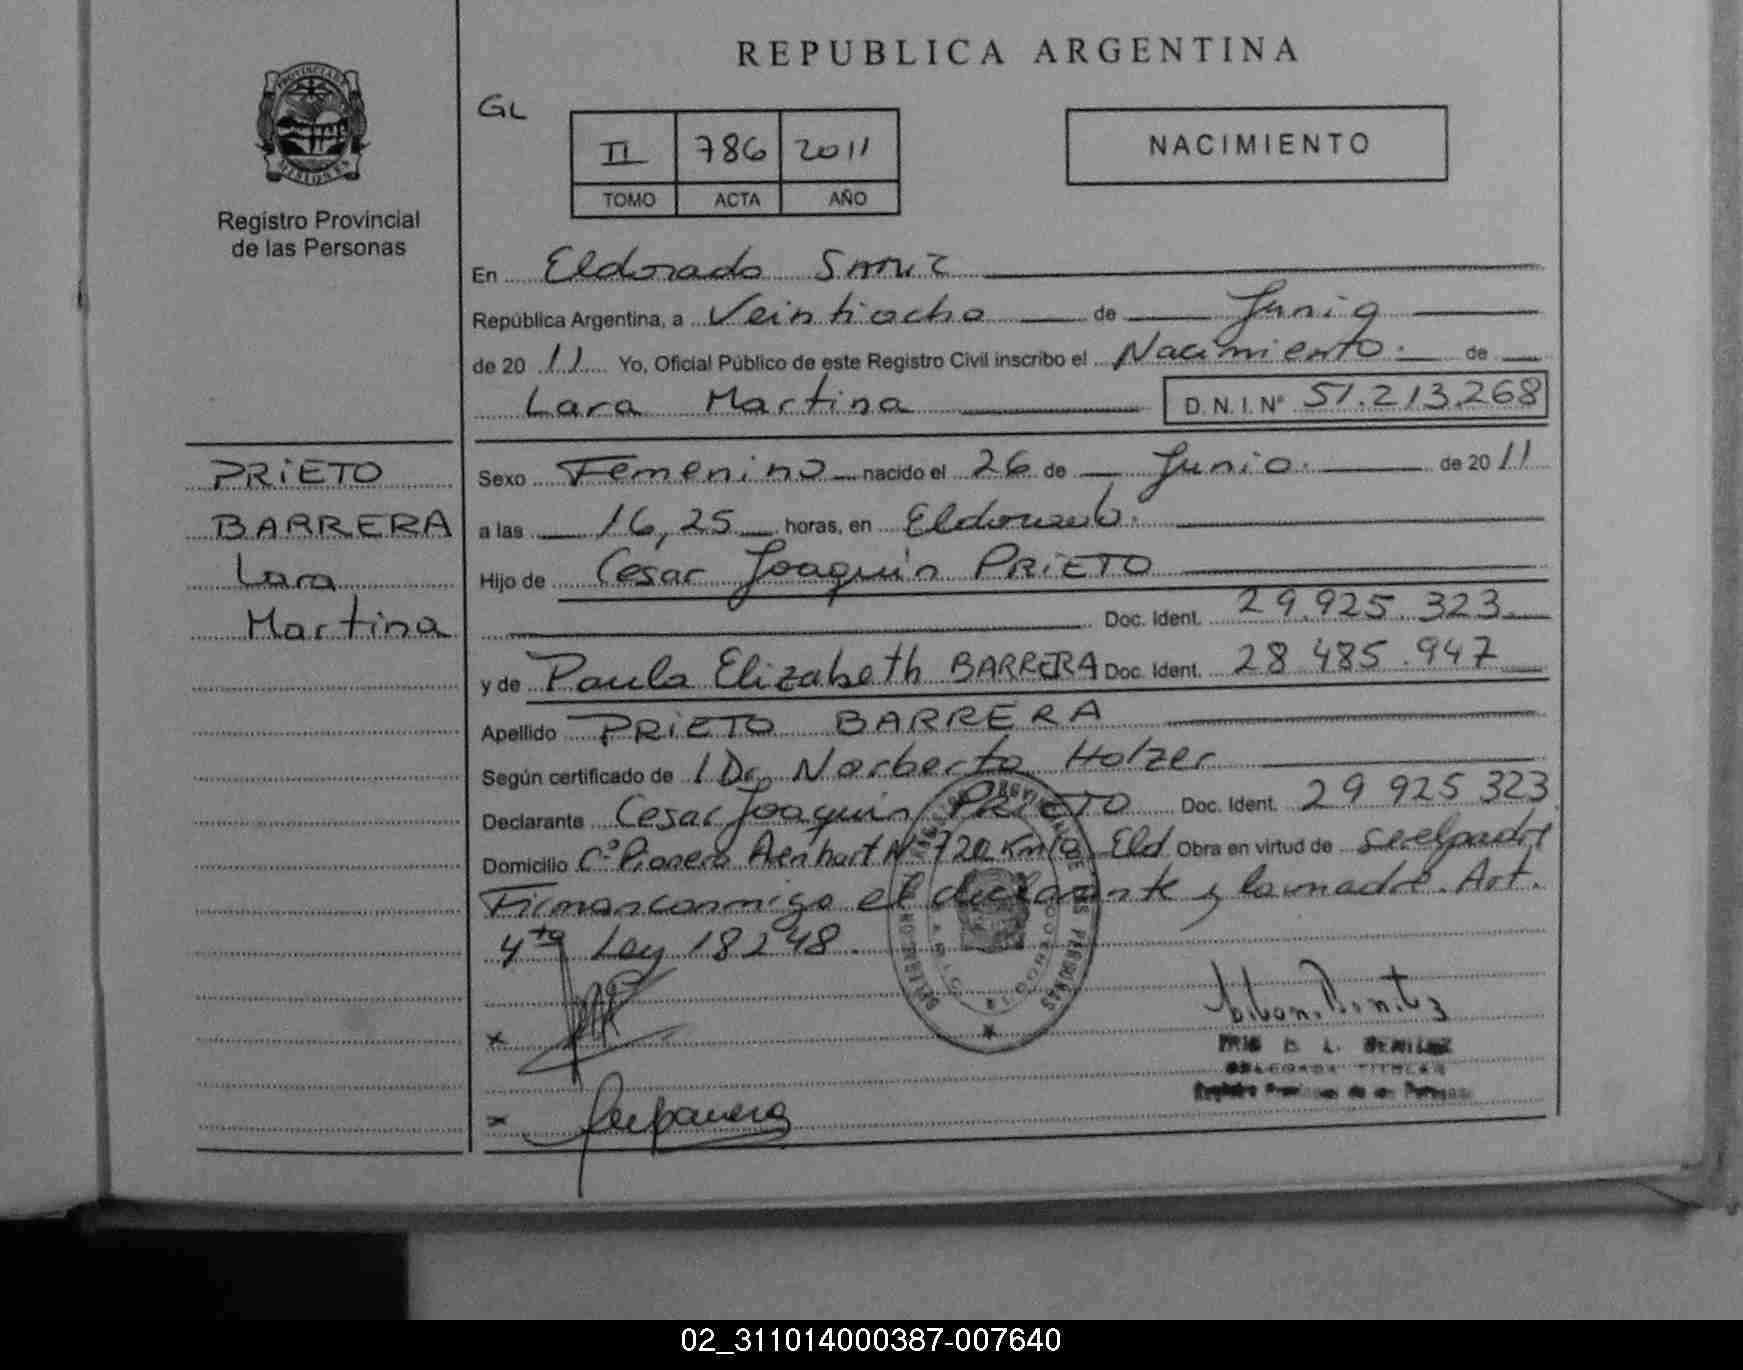 REPUBLICA ARGENTINA
GL
II 786 2011
TOMO ACTA AÑO
NACIMIENTO
PROVINCIA DE
MISIONES
Registro Provincial
de las Personas
En Eldorado
República Argentina, a Veintiocho de Junio
de 20 11 Yo, Oficial Público de este Registro Civil inscribo el Nacimiento. de
Lara Martina D.N.I. Nº 51.213.268
PRIETO
BARRERA
Lara
Martina
Sexo Femenino nacido el 26 de Junio. de 20 11
a las 16,25 horas, en Eldorado.
Hijo de Cesar Joaquin PRIETO
Doc. Ident. 29.925.323
y de Paula Elizabeth BARRERA Doc. Ident. 28.485.947
Apellido PRIETO BARRERA
Según certificado de Dr. Norberto Holzer
Declarante Cesar Joaquin PRIETO Doc. Ident. 29 925 323
Domicilio Cº Pionero Nº 720 Km Eld Obra en virtud de ser el padre
Firman conmigo el declarante y la madre. Art.
4to Ley 18248.
x
x
DELEGADA TITULAR
Registro Provincial de las Personas
02_311014000387-007640